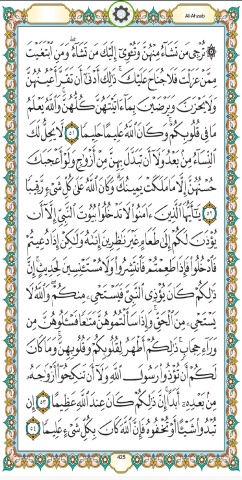 Al-Ahzab
۞ تُرْجِي مَن تَشَآءُ مِنْهُنَّ وَتُـْٔوِيٓ إِلَيْكَ مَن تَشَآءُۖ وَمَنِ ٱبْتَغَيْتَ
مِمَّنْ عَزَلْتَ فَلَا جُنَاحَ عَلَيْكَۚ ذَٰلِكَ أَدْنَىٰٓ أَن تَقَرَّ أَعْيُنُهُنَّ
وَلَا يَحْزَنَّ وَيَرْضَيْنَ بِمَآ ءَاتَيْتَهُنَّ كُلُّهُنَّۚ وَٱللَّهُ يَعْلَمُ
مَا فِي قُلُوبِكُمْۚ وَكَانَ ٱللَّهُ عَلِيمًا حَلِيمٗا ٥١ لَّا يَحِلُّ لَكَ
ٱلنِّسَآءُ مِنۢ بَعْدُ وَلَآ أَن تَبَدَّلَ بِهِنَّ مِنْ أَزْوَٰجٖ وَلَوْ أَعْجَبَكَ
حُسْنُهُنَّ إِلَّا مَا مَلَكَتْ يَمِينُكَۗ وَكَانَ ٱللَّهُ عَلَىٰ كُلِّ شَيْءٖ رَّقِيبٗا
٥٢ يَٰٓأَيُّهَا ٱلَّذِينَ ءَامَنُوا۟ لَا تَدْخُلُوا۟ بُيُوتَ ٱلنَّبِيِّ إِلَّآ أَن
يُؤْذَنَ لَكُمْ إِلَىٰ طَعَامٍ غَيْرَ نَٰظِرِينَ إِنَىٰهُ وَلَٰكِنْ إِذَا دُعِيتُمْ
فَٱدْخُلُوا۟ فَإِذَا طَعِمْتُمْ فَٱنتَشِرُوا۟ وَلَا مُسْتَـْٔنِسِينَ لِحَدِيثٍۚ إِنَّ
ذَٰلِكُمْ كَانَ يُؤْذِي ٱلنَّبِيَّ فَيَسْتَحْيِۦ مِنكُمْۖ وَٱللَّهُ لَا
يَسْتَحْيِۦ مِنَ ٱلْحَقِّۚ وَإِذَا سَأَلْتُمُوهُنَّ مَتَٰعٗا فَسْـَٔلُوهُنَّ مِن
وَرَآءِ حِجَابٖۚ ذَٰلِكُمْ أَطْهَرُ لِقُلُوبِكُمْ وَقُلُوبِهِنَّۚ وَمَا كَانَ
لَكُمْ أَن تُؤْذُوا۟ رَسُولَ ٱللَّهِ وَلَآ أَن تَنكِحُوٓا۟ أَزْوَٰجَهُۥ
مِنۢ بَعْدِهِۦٓ أَبَدًاۚ إِنَّ ذَٰلِكُمْ كَانَ عِندَ ٱللَّهِ عَظِيمًا ٥٣ إِن
تُبْدُوا۟ شَيْـًٔا أَوْ تُخْفُوهُ فَإِنَّ ٱللَّهَ كَانَ بِكُلِّ شَيْءٍ عَلِيمٗا ٥٤
425